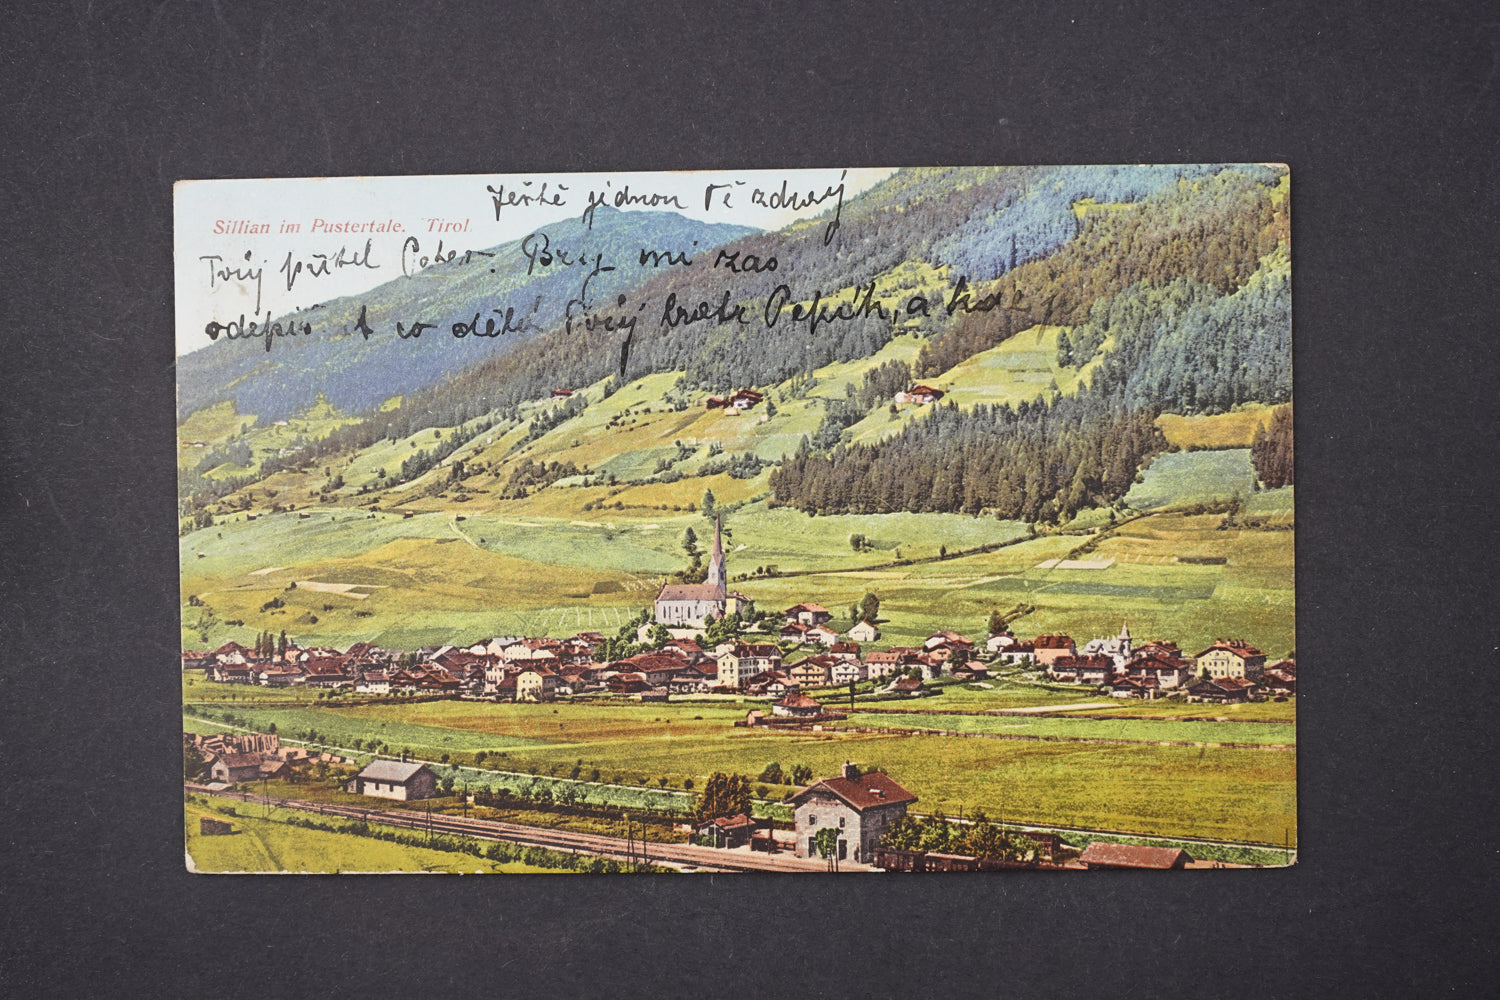 Ještě jednou Tě zdraví
Sillian im Pustertale. Tirol.
Tvůj přítel Peter. Brzy mi zas
odepiš. A co dělá Tvůj bratr Pepík, a kde je